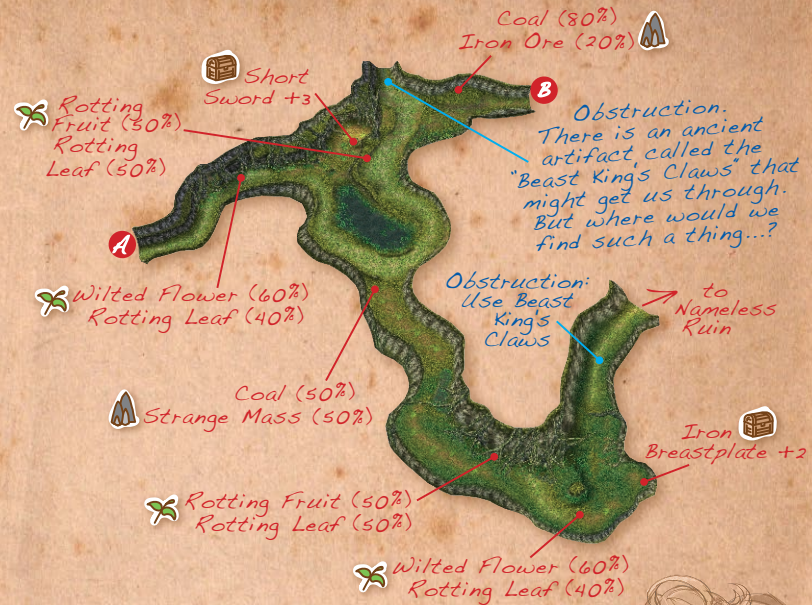 Coal (80%)
Iron Ore (20%)
Short
Sword +3
B
Rotting
Fruit (50%)
Rotting
Leaf (50%)
Obstruction.
There is an ancient
artifact called the
"Beast King's Claws" that
might get us through.
But where would we
find such a thing...?
A
Wilted Flower (60%)
Rotting Leaf (40%)
Obstruction:
Use Beast
King's
Claws
to
Nameless
Ruin
Coal (50%)
Strange Mass (50%)
Iron
Breastplate +2
Rotting Fruit (50%)
Rotting Leaf (50%)
Wilted Flower (60%)
Rotting Leaf (40%)